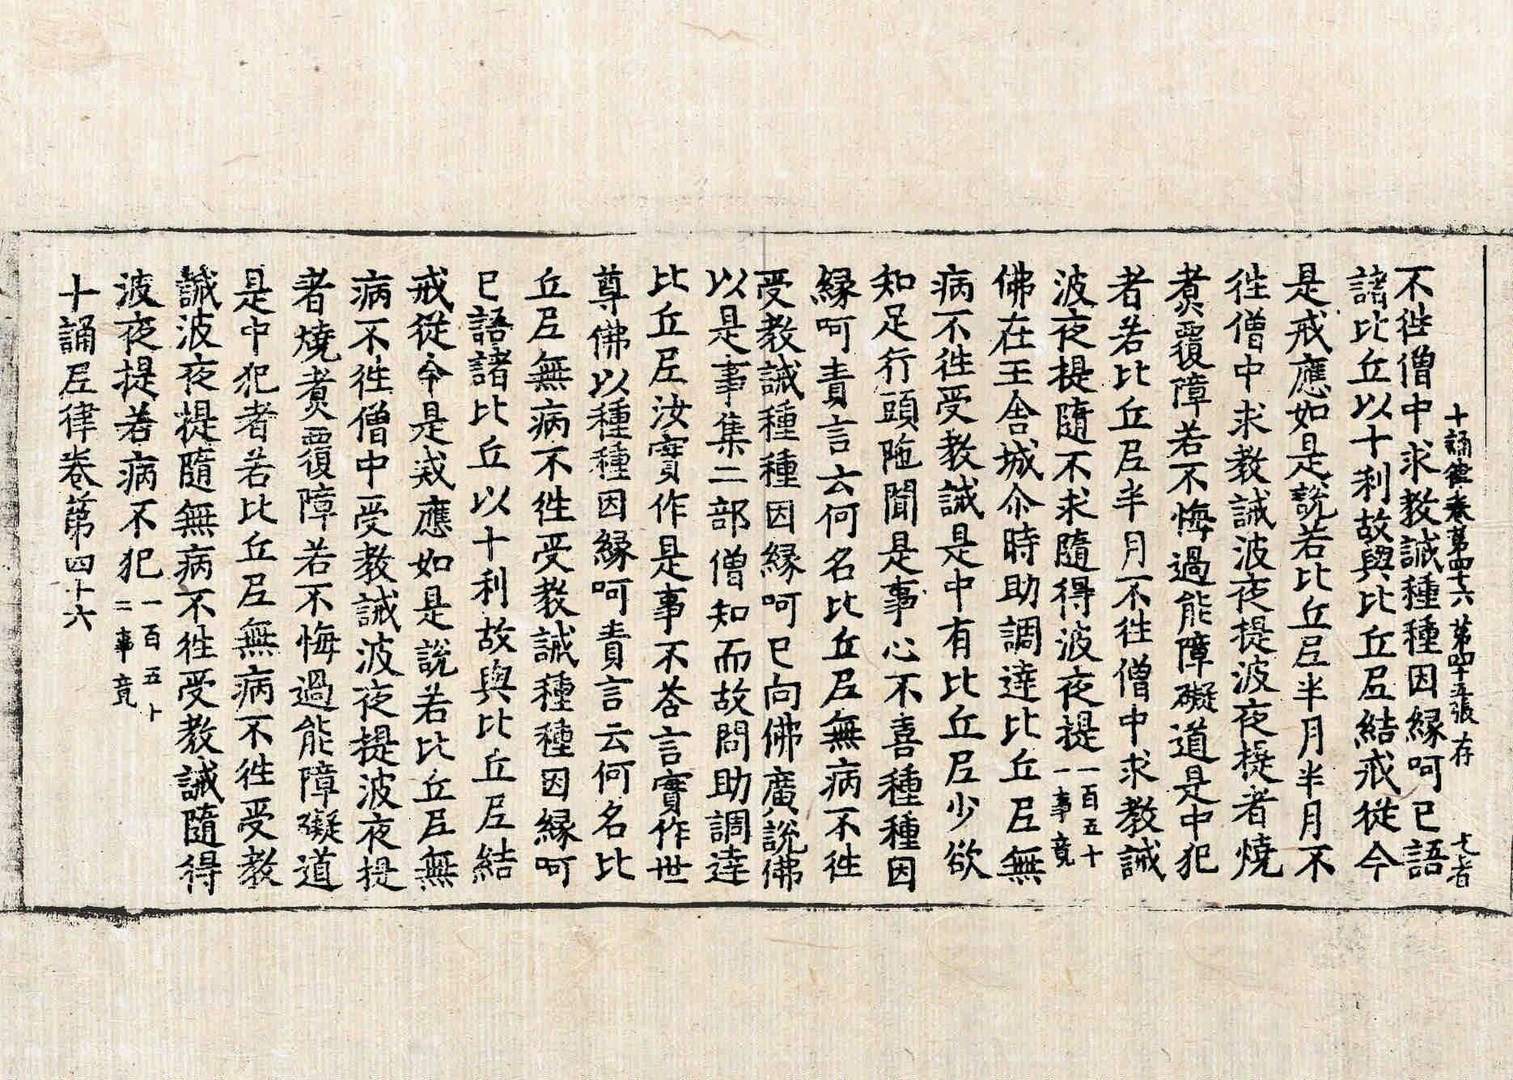 十誦律卷第四十六 第四十五張 存
不徃僧中求教誡種種因緣呵已語
諸比丘以十利故與比丘尼結戒從今
是戒應如是說若比丘尼半月半月不
徃僧中求教誡波夜提波夜提者燒
煑覆障若不悔過能障礙道是中犯
者若比丘尼半月不徃僧中求教誡
波夜提隨不求隨得波夜提一百五十
一事竟
佛在王舍城尒時助調達比丘尼無
病不徃受教誡是中有比丘尼少欲
知足行頭陁聞是事心不喜種種因
緣呵責言云何名比丘尼無病不徃
受教誡種種因緣呵已向佛廣說佛
以是事集二部僧知而故問助調達
比丘尼汝實作是事不荅言實作世
尊佛以種種因緣呵責言云何名比
丘尼無病不徃受教誡種種因緣呵
已語諸比丘以十利故與比丘尼結
戒從今是戒應如是說若比丘尼無
病不徃僧中受教誡波夜提波夜提
者燒煑覆障若不悔過能障礙道
是中犯者若比丘尼無病不徃受教
誡波夜提隨無病不徃受教誡隨得
波夜提若病不犯一百五十
二事竟
十誦尼律卷第四十六